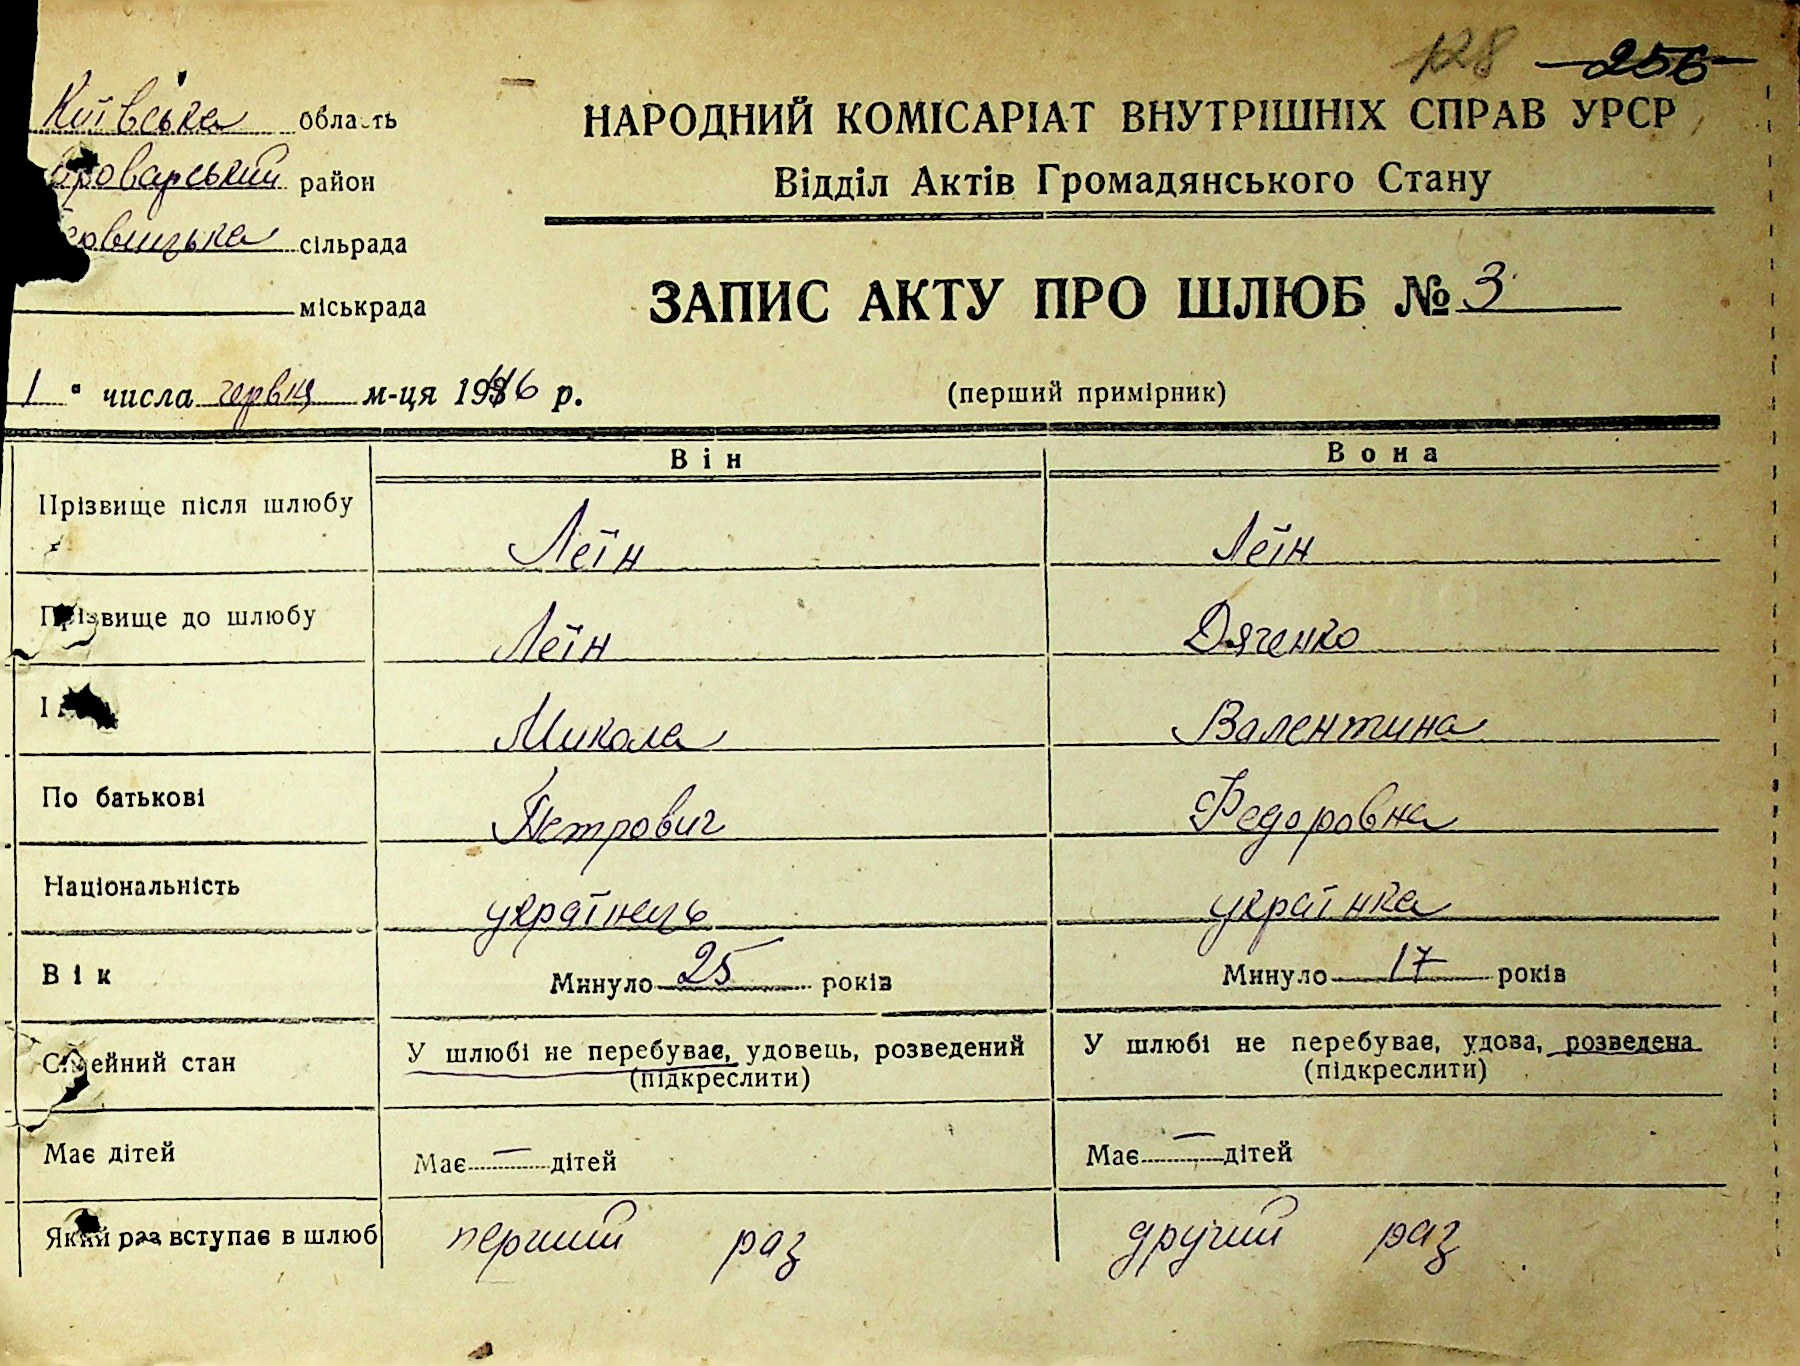 128 256
Київська область
Броварський район
сільрада
міськрада
НАРОДНИЙ КОМІСАРІАТ ВНУТРІШНІХ СПРАВ УРСР
Відділ Актів Громадянського Стану
ЗАПИС АКТУ ПРО ШЛЮБ № 3
1 числа червня м-ця 1946 р.
(перший примірник)
Він Вона
Прізвище після шлюбу Леїн Леїн
Прізвище до шлюбу Леїн Дяченко
Микола Валентина
По батькові Петрович Федоровна
Національність українець українка
Вік Минуло 25 років Минуло 17 років
Сімейний стан У шлюбі не перебуває, удовець, розведений У шлюбі не перебуває, удова, розведена
(підкреслити) (підкреслити)
Має дітей Має — дітей Має — дітей
Який раз вступає в шлюб перший раз другий раз